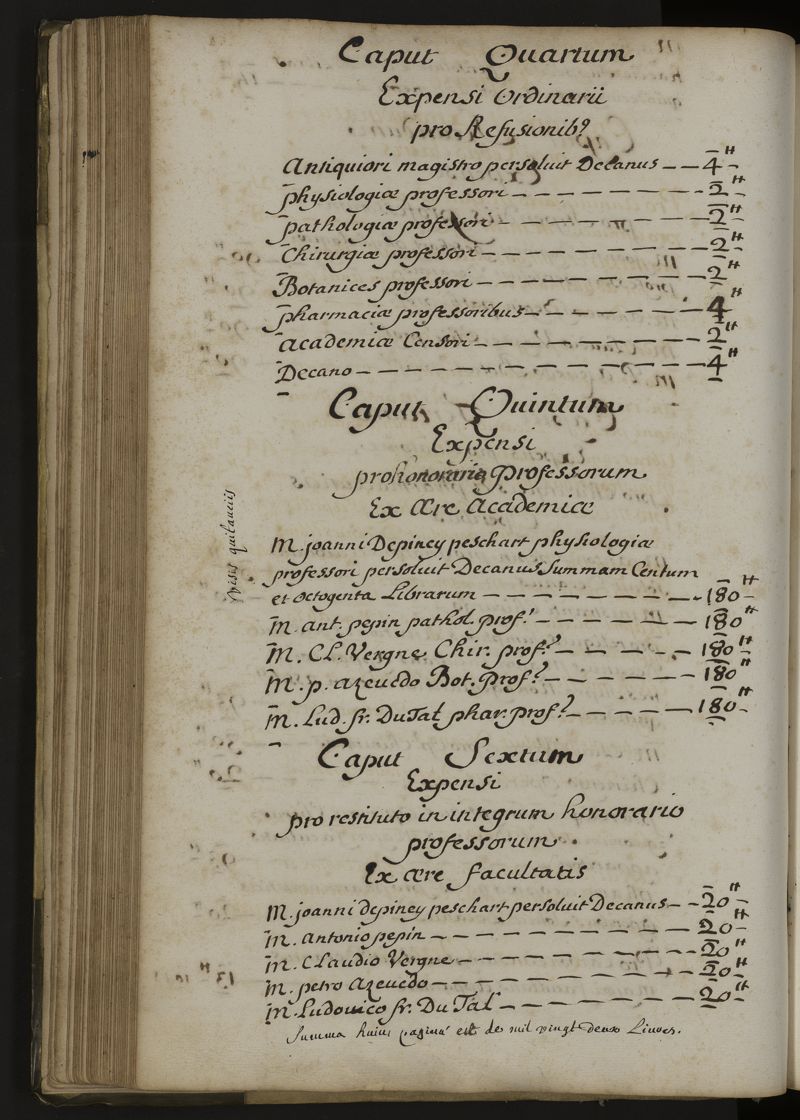 Caput Quartum
Expensi Ordinarii
pro Refusionib9
Antiquiori magistro persoluit Decanus — — 4 ⁗
physiologiæ professori — — — — — — — - 2 ⁗
pathologiæ professori — — — — — — — 2 ⁗
Chirurgiæ professori — — — — — — — - 2 ⁗
Botanices professori — — — — — — — 2 ⁗
pharmaciæ professoribus — - — — — — — 4 ⁗
academiæ Censori — — — — — — — — 2 ⁗
Decano — — — — — — — — — — — — 4 ⁗
Caput Quintum
Expensi
pro honorario professorum
Ex Ære Academiæ
visis quitanciis
M. joanni Depiney peschart physiologiæ
professori persoluit Decanus Summam Centum
et octogenta Librarum — — — — — — — - 180 ⁗
M. ant. pepin pathol. prof.' — — — — — — 180 ⁗
M. CL. Vergne Chir. prof.? — — — - — 180 ⁗
M. p. azeuedo Bot. prof? — — — — — — 180 ⁗
M. Lud. fr. DuTal phar. prof? — — — — — 180 ⁗
Caput Sextum
Expensi
pro restituto in integrum honorario
professorum
Ex ære facultatis
M. joanni depiney peschart persoluit Decanus — - 20 ⁗
M. antonio pepin — — — — — — — — — — 20 ⁗
M. CLaudio Vergne — — — — — — — — — 20 ⁗
M. petro azeuedo — — — — — — — — — — 20 ⁗
M. Ludouico fr. Du Tal — — — — — — — — 20 ⁗
Summa huius paginæ est de mil vingt deux Livres.